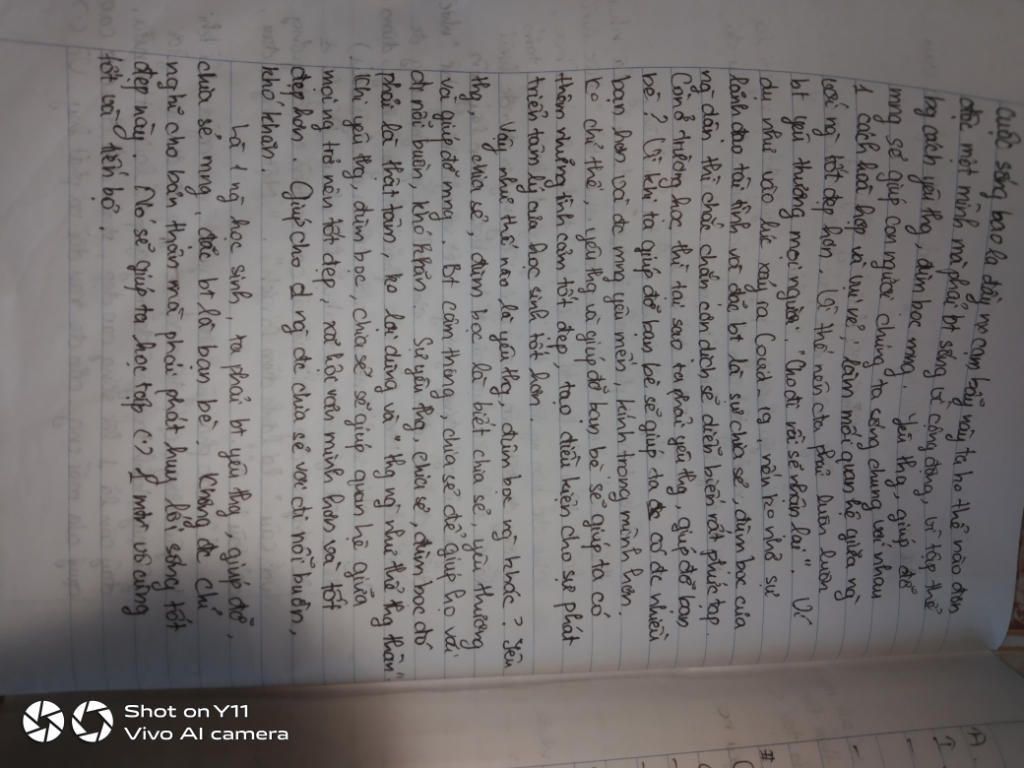 Cuộc sống bao la đầy rẫy cạm bẫy này ta ko thể nào đơn
độc một mình mà phải bt sống vì cộng đồng, vì tập thể
bg cách yêu thg, đùm bọc mng. Yêu thg, giúp đỡ
mng sẽ giúp con người chúng ta sống chung với nhau
1 cách hoà hợp và vui vẻ, làm mối quan hệ giữa ng
với ng tốt đẹp hơn. Vì thế nên cta phải luôn luôn
bt yêu thương mọi người. "Cho đi rồi sẽ nhận lại". Ví
dụ như vào lúc xảy ra Covid-19, nếu ko nhờ sự
lãnh đạo tài tình và đặc bt là sự chia sẻ, đùm bọc của
ng dân thì chắc chắn còn dịch sẽ diễn biến rất phức tạp.
Còn ở trường học thì tại sao ta phải yêu thg, giúp đỡ bạn
bè? Vì khi ta giúp đỡ bạn bè sẽ giúp ta có đc nhiều
bạn hơn và đc mng yêu mến, kính trọng mình hơn.
Ko chỉ thế, yêu thg và giúp đỡ bạn bè sẽ giúp ta có
thêm những tình cảm tốt đẹp, tạo điều kiện cho sự phát
triển tâm lý của học sinh tốt hơn.
Vậy như thế nào là yêu thg, đùm bọc ng khác? Yêu
thg, chia sẻ, đùm bọc là biết chia sẻ, yêu thương
và giúp đỡ mng. Bt cảm thông, chia sẻ để giúp họ vơi
đi nỗi buồn, khó khăn. Sự yêu thg, chia sẻ, đùm bọc đó
phải là thật tâm, ko lợi dụng và "thg ng như thể thg thân".
Khi yêu thg, đùm bọc, chia sẻ sẽ giúp quan hệ giữa
mọi ng trở nên tốt đẹp, xã hội văn minh hơn và tốt
đẹp hơn. Giúp cho 1 ng đc chia sẻ vơi đi nỗi buồn,
khó khăn.
Là 1 ng học sinh, ta phải bt yêu thg, giúp đỡ,
chia sẻ mng, đặc bt là bạn bè. Không đc chỉ
nghĩ cho bản thân mà phải phát huy lối sống tốt
đẹp này. Nó sẽ giúp ta học tập () 1 môi vô cùng
tốt và tiến bộ.
Shot on Y11
Vivo AI camera